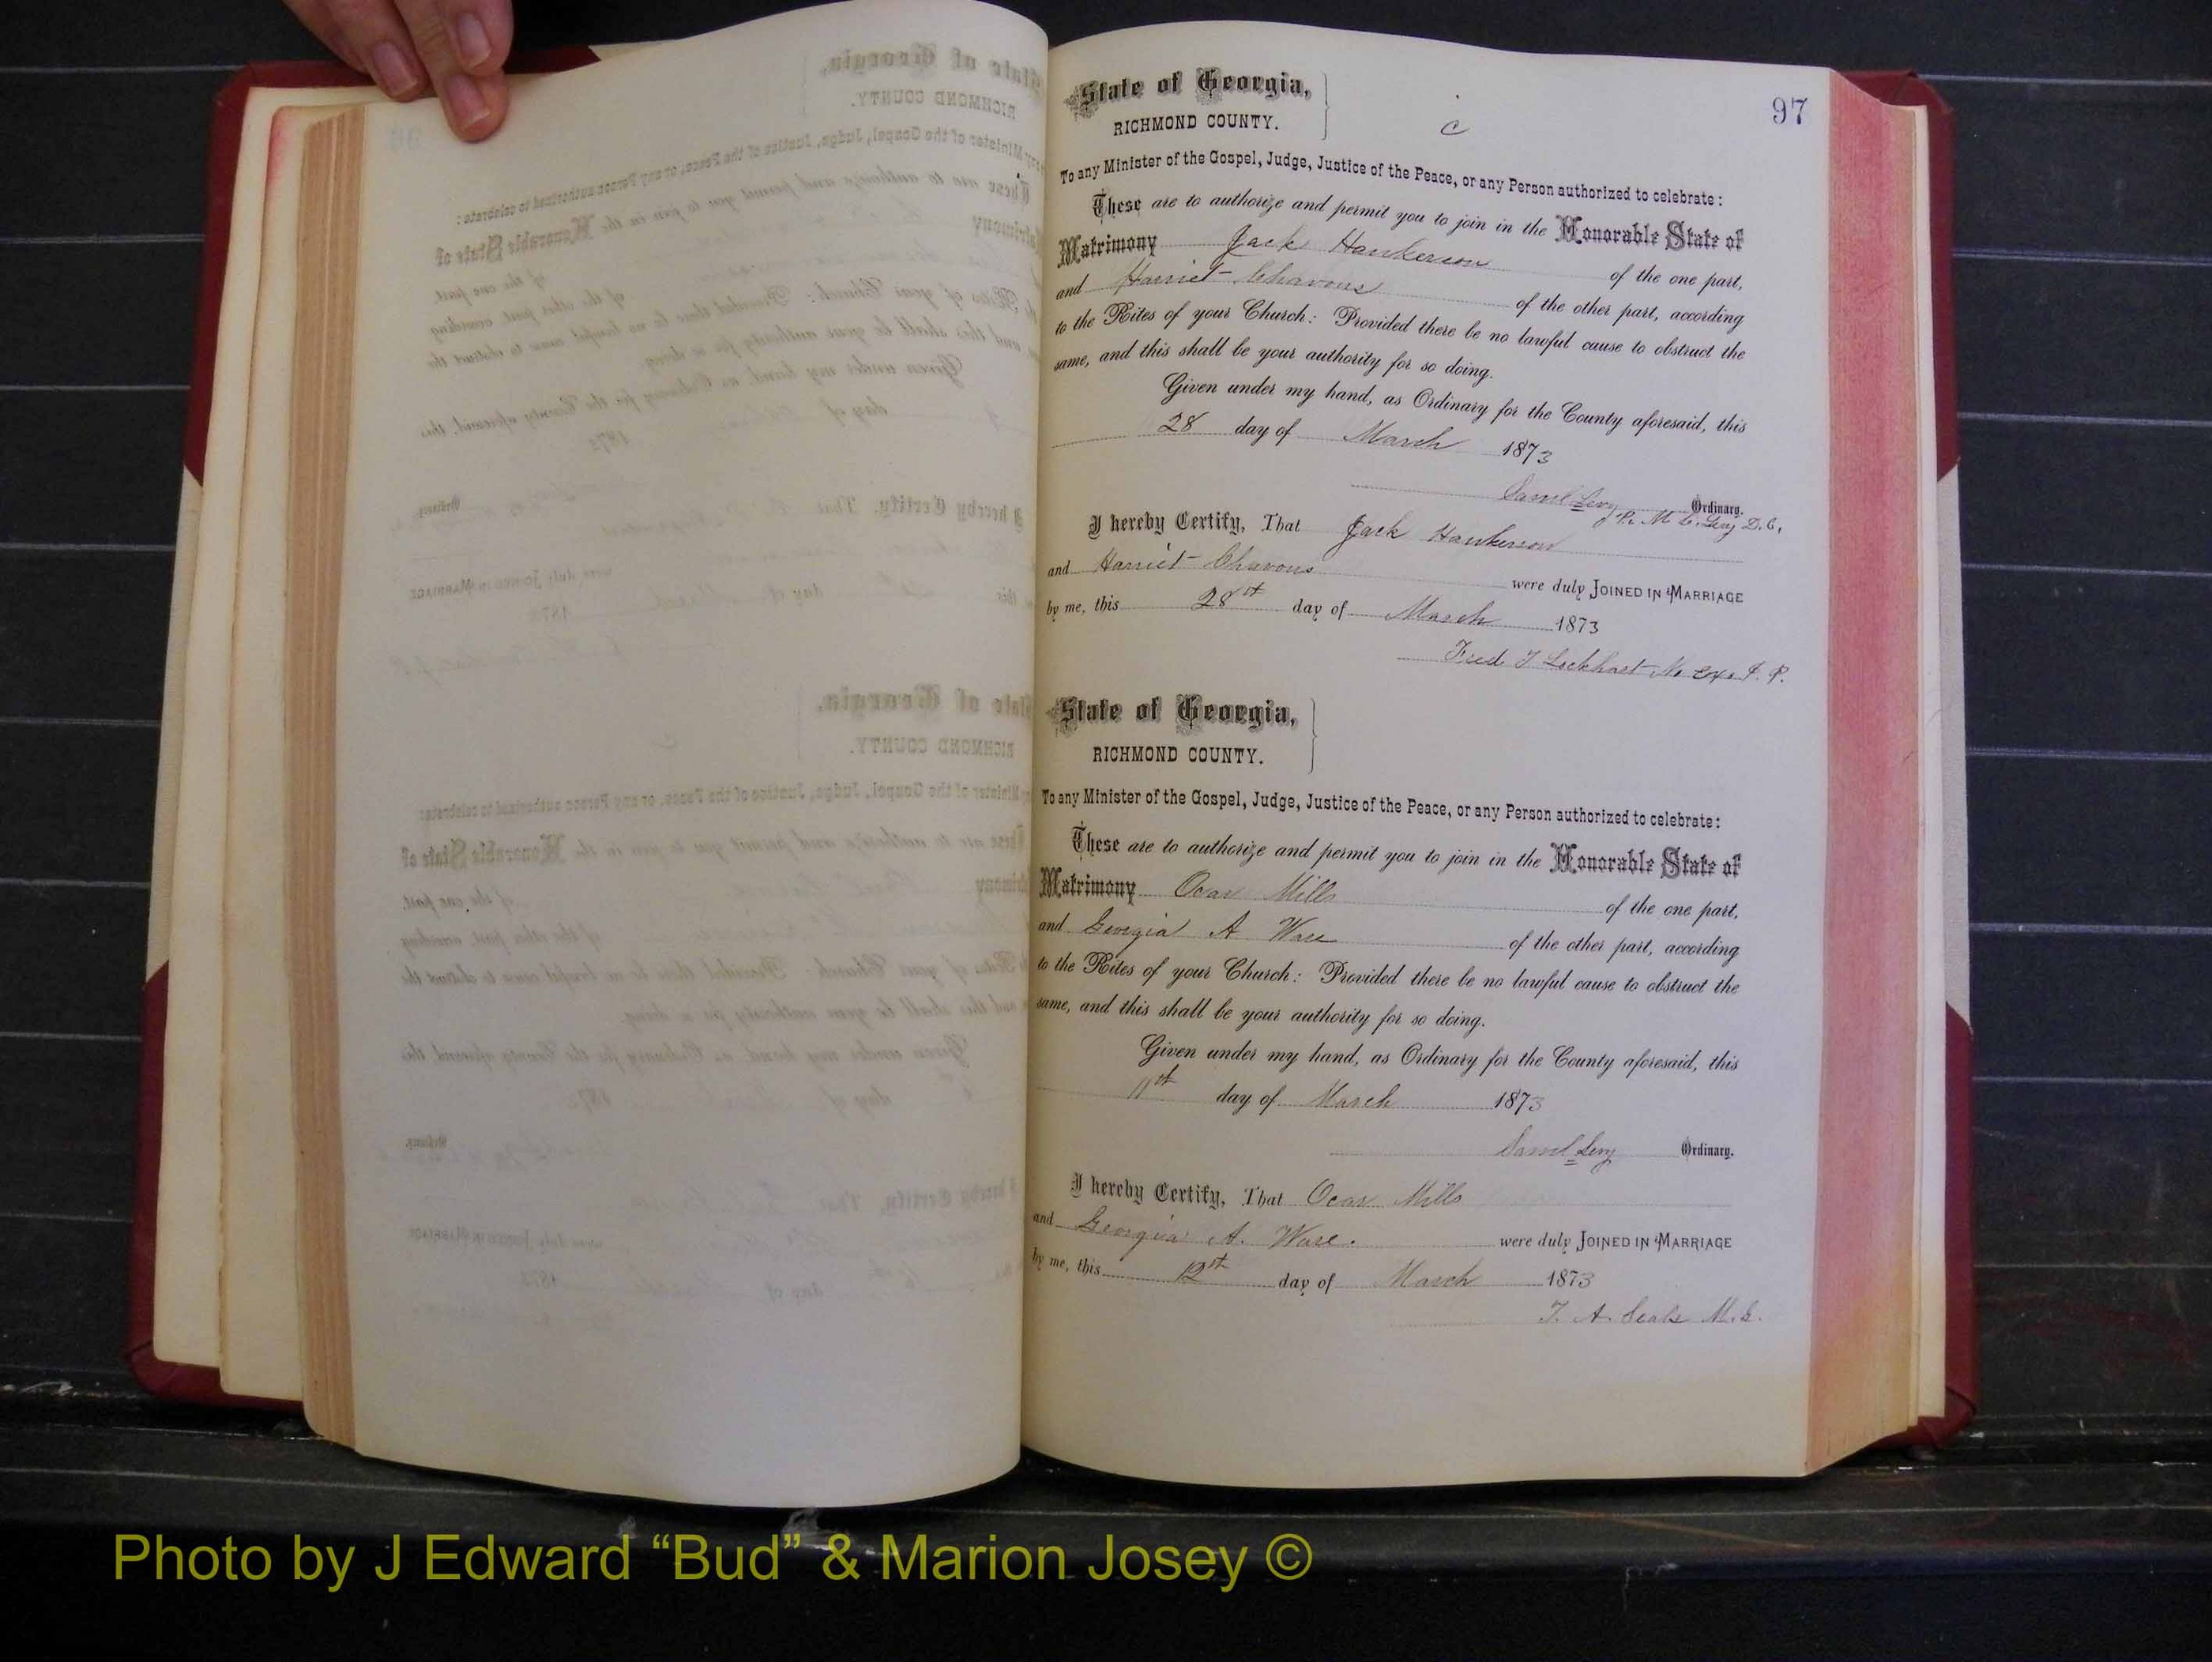 97
State of Georgia,
RICHMOND COUNTY.
c
To any Minister of the Gospel, Judge, Justice of the Peace, or any Person authorized to celebrate:
These are to authorize and permit you to join in the Honorable State of
Matrimony Jack Hankerson of the one part,
and Harriet Chavous of the other part, according
to the Rites of your Church: Provided there be no lawful cause to obstruct the
same, and this shall be your authority for so doing.
Given under my hand, as Ordinary for the County aforesaid, this
28 day of March 1873
Saml Levy Ordinary.
Pr. M C. Levy D. C,
I hereby Certify, That Jack Hankerson
and Harriet Chavous were duly JOINED IN MARRIAGE
by me, this 28th day of March 1873
Fred T Lockhart J. P.
State of Georgia,
RICHMOND COUNTY.
To any Minister of the Gospel, Judge, Justice of the Peace, or any Person authorized to celebrate:
These are to authorize and permit you to join in the Honorable State of
Matrimony Ocar Mills of the one part,
and Georgia A Ware of the other part, according
to the Rites of your Church: Provided there be no lawful cause to obstruct the
same, and this shall be your authority for so doing.
Given under my hand, as Ordinary for the County aforesaid, this
11th day of March 1873
Saml Levy Ordinary.
I hereby Certify, That Ocar Mills
and Georgia A. Ware. were duly JOINED IN MARRIAGE
by me, this 12th day of March 1873
T. A. Seals M. G.
Photo by J Edward “Bud” & Marion Josey ©